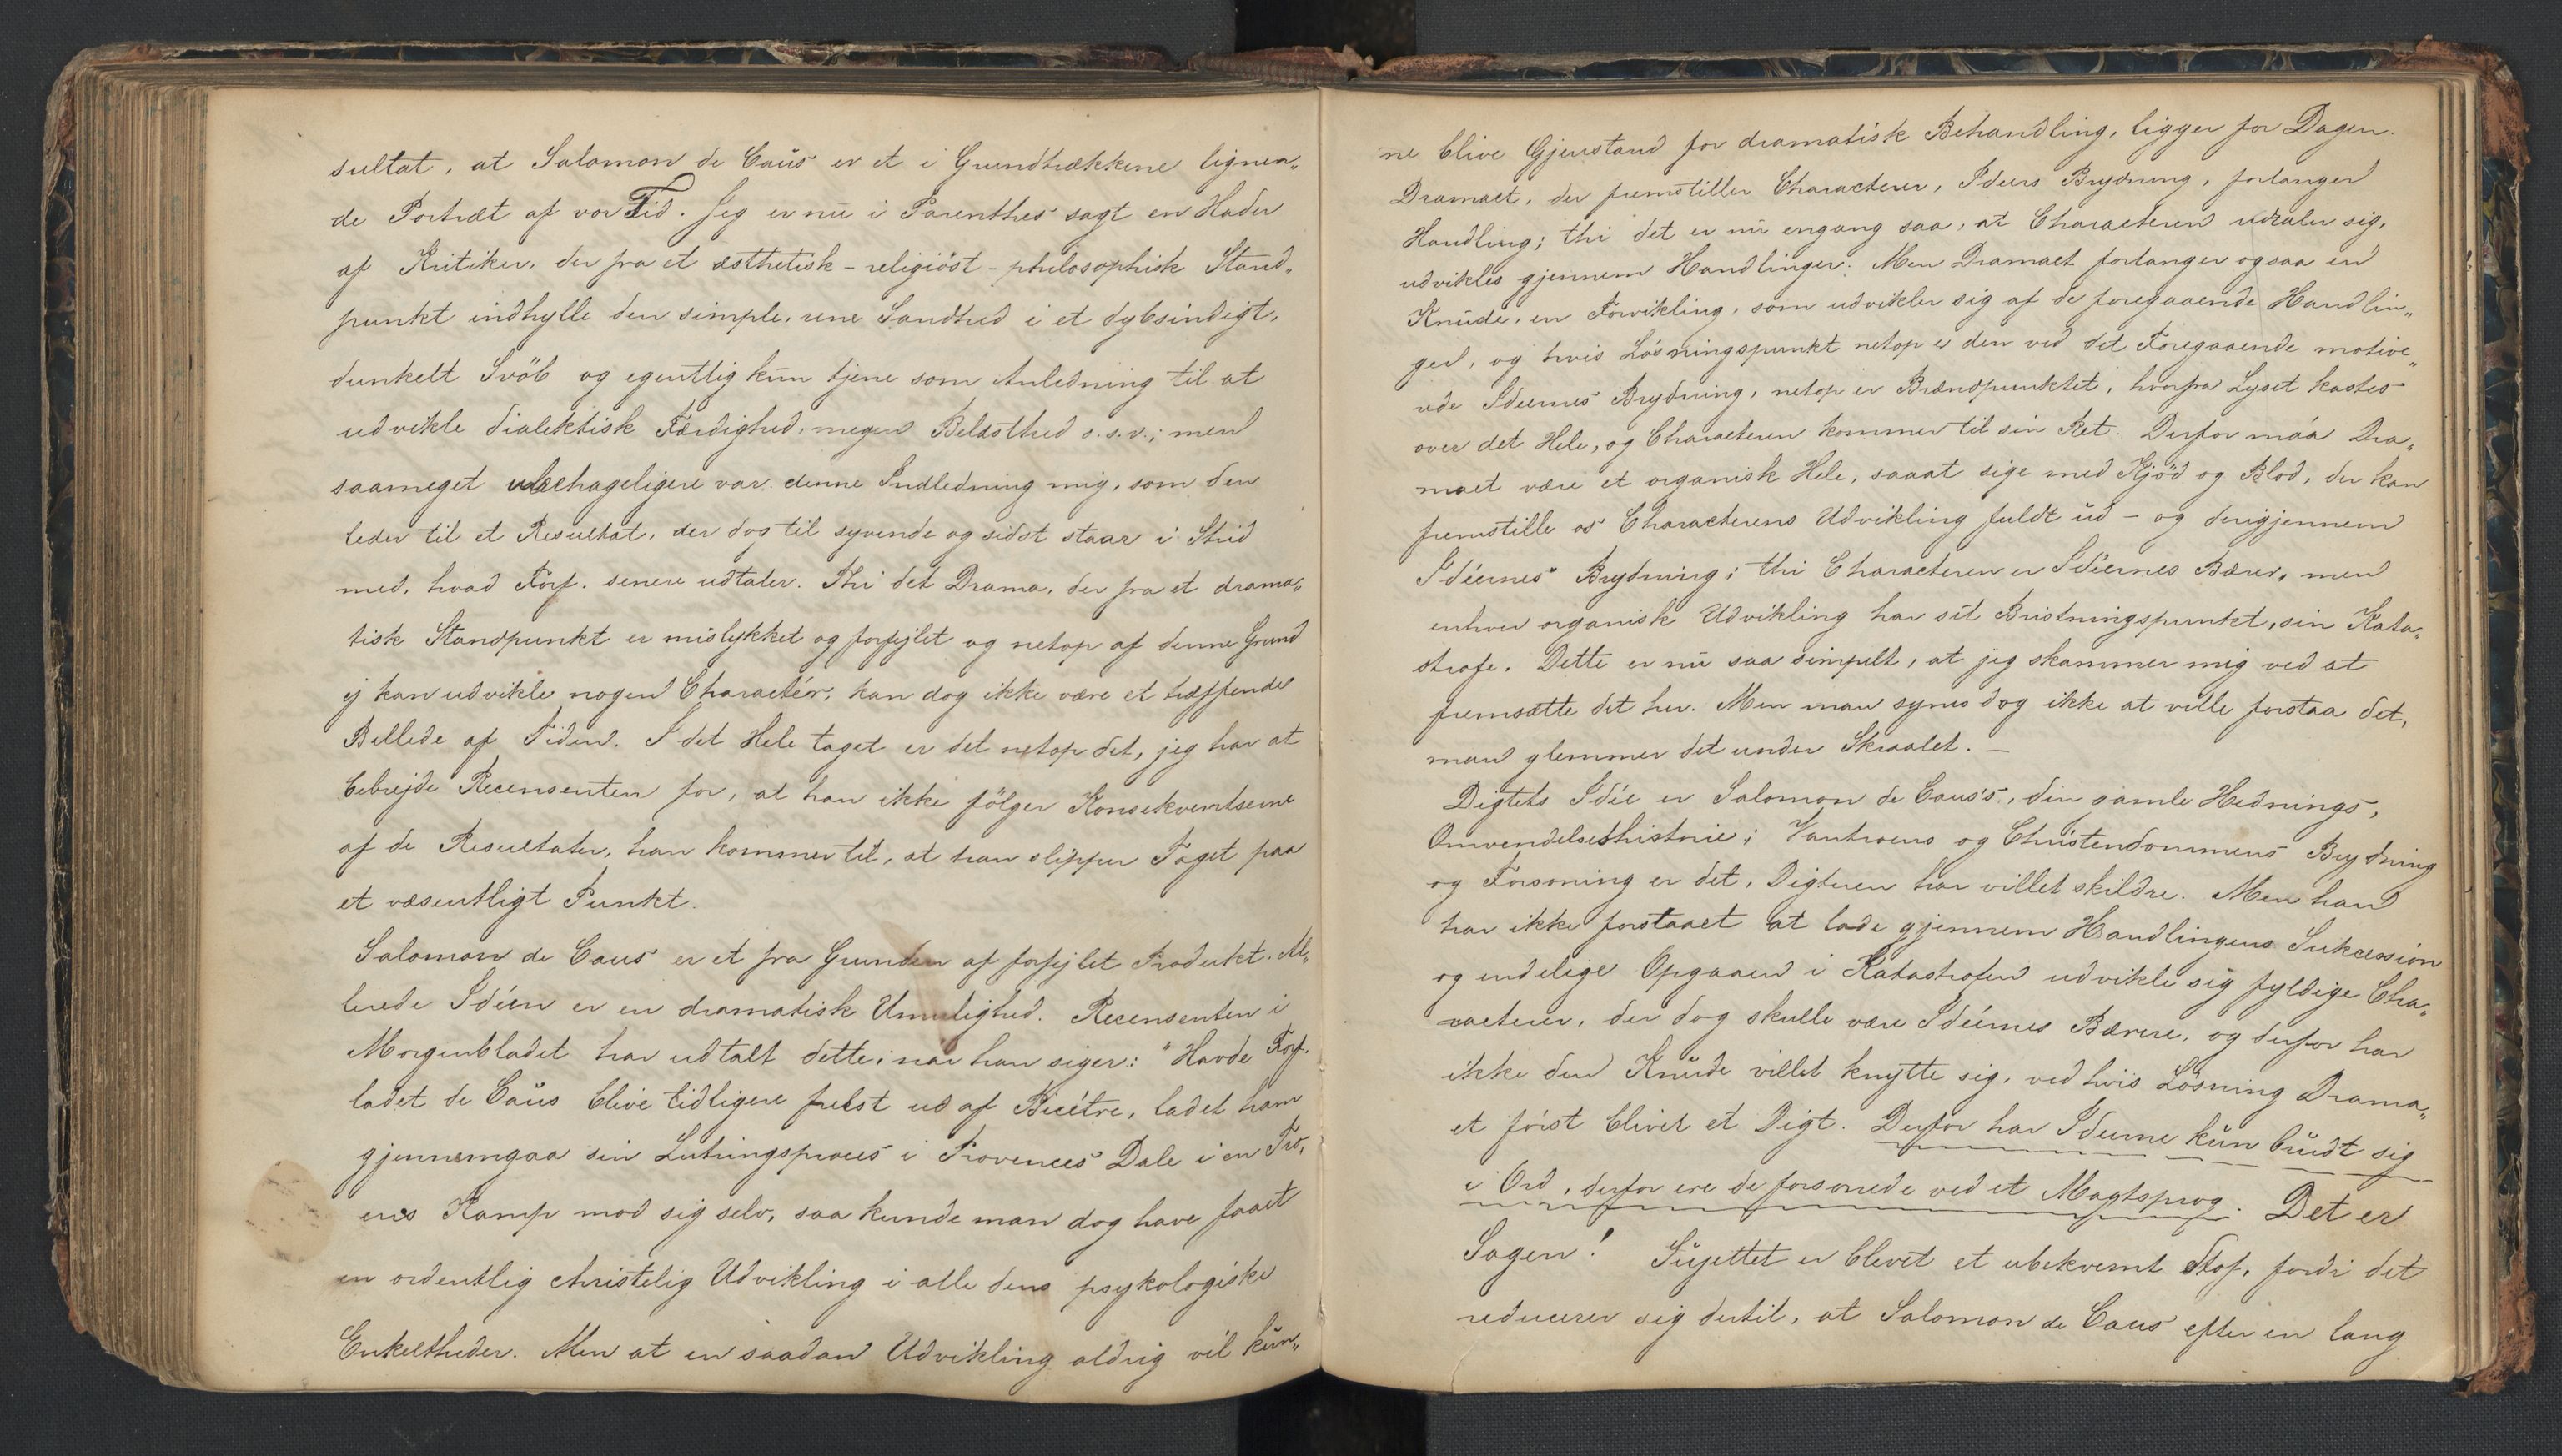 sultat, at Salomon de Caus er et i Grundtrækkene lignen„
de Portræt af vor Tid. Jeg er nu i Parenthes sagt en Hader
af Kritiker, der fra et æsthetisk-religiöst-philosophisk Stand„
punkt indhylle den simple, rene Sandhed i et dybsindigt,
dunkelt Svöb og egentlig kun tjene som Anledning til at
udvikle dialektisk Færdighed, megen Belæsthed o.s.v.; men
saameget ubehageligere var denne Indledning mig, som den
leder til et Resultat, der dog til syvende og sidst staar i Strid
med, hvad Forf. senere udtaler. Thi det Drama, der fra et drama„
tisk Standpunkt er mislykket og forfejlet og netop af denne Grund
ej kan udvikle nogen Charactér, kan dog ikke være et træffende
Billede af Tiden. I det Hele taget er det netop det, jeg har at
bebrejde Recensenten for, at han ikke fölger Konsekventserne
af de Resultater, han kommer til, at han slipper Taget paa
et væsentligt Punkt.
Salomon de Caus er et fra Grunden af forfejlet Produkt. Al„
lerede Idéen er en dramatisk Umulighed. Recensenten i
Morgenbladet har udtalt dette, nar han siger: "Havde Forf.
ladet de Caus blive tidligere frelst ud af Bicétre, ladet ham
gjennemgaa sin Lutringsproces i Provences Dale i en Tro„
ens Kamp mod sig selv, saa kunde man dog have faaet
en ordentlig christelig Udvikling i alle dens psykologiske
Enkeltheder. Men at en saadan Udvikling aldrig vil kun„
ne blive Gjenstand for dramatisk Behandling, ligger for Dagen.
Dramaet, der fremstiller Characterer, Ideers Brydning, forlanger
Handling; thi det er nu engang saa, at Characteren udtaler sig,
udvikles gjennem Handlinger. Men Dramaet forlanger ogsaa en
Knude, en Forvikling, som udvikler sig af de foregaaende Handlin„
ger, og hvis Lösningspunkt netop er den ved det Foregaaende motive„
rede Ideernes Brydning, netop er Brændpunktet, hvorfra Lyset kastes
over det Hele, og Characteren kommer til sin Ret. Derfor maa Dra„
maet være et organisk Hele, saaat sige med Kjöd og Blod, der kan
fremstille os Characterens Udvikling fuldt ud - og derigjennem
Idéernes Brydning; thi Characteren er Idéernes Bærer, men
enhver organisk Udvikling har sit Bristningspunkt, sin Kata„
strofe. Dette er nu saa simpelt, at jeg skammer mig ved at
fremsætte det her. Men man synes dog ikke at ville forstaa det,
man glemmer det under Skraalet. —
Digtets Idée er Salomon de Caus's, den gamle Hednings,
Omvendelseshistorie; Vantroens og Christendommens Brydning
og Forsoning er det, Digteren har villet skildre. Men han
har ikke forstaaet at lade gjennem Handlingens Sukcession
og endelige Opgaaen i Katastrofen udvikle sig fyldige Cha„
racterer, der dog skulle være Idéernes Bærere, og derfor har
ikke den Knude villet knytte sig, ved hvis Lösning Drama„
et först bliver et Digt. Derfor har Ideerne kun budt sig
i Ord, derfor ere de forsonede ved et Magtsprog. Det er
Sagen! Sujettet er blevet et ubekvemt Stof, fordi det
reducerer sig dertil, at Salomon de Caus efter en lang